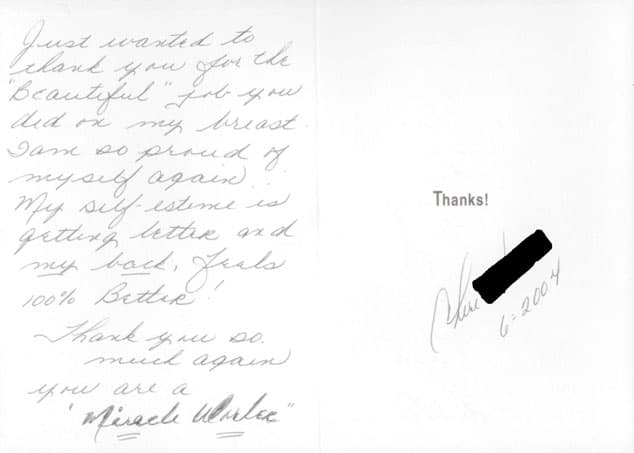 Just wanted to
thank you for the
"Beautiful" job you
did on my breast.
I am so proud of
myself again...
My self-esteme is
getting better and
my back, feels
100% Better!
Thank you so
much again
you are a
"Miracle Worker"
Thanks!
6-2004